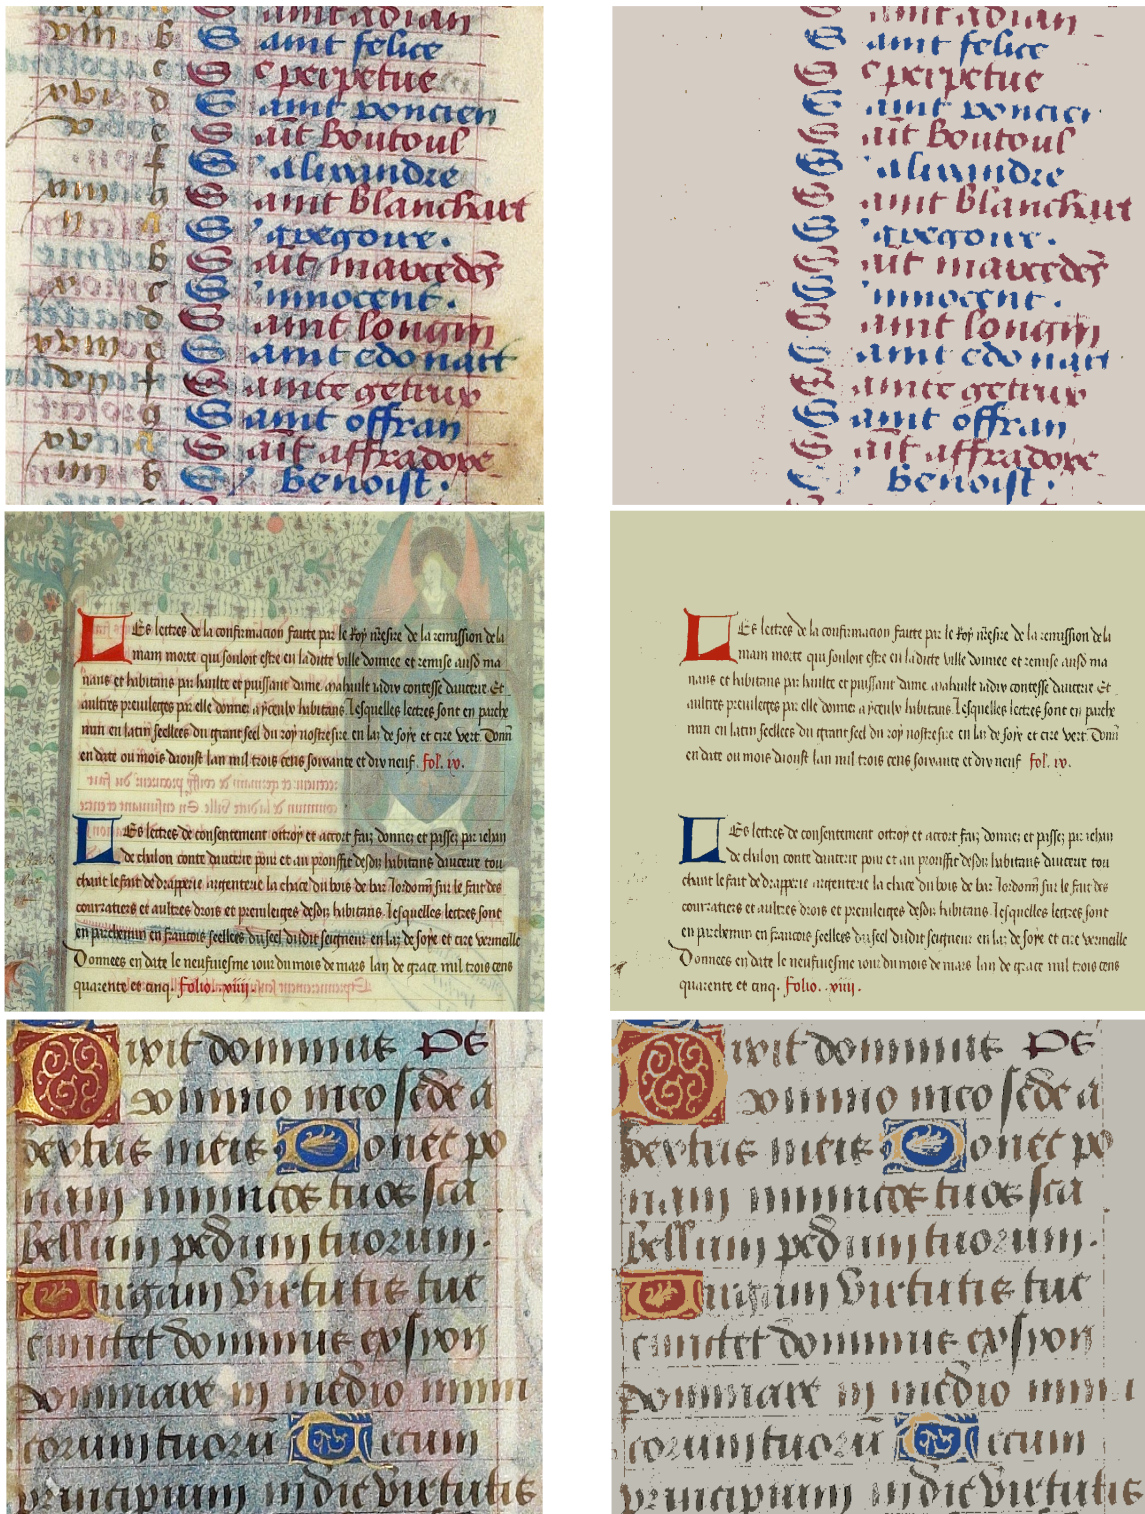 Saint adrian
viii b Saint felice
c Se perpetue
xvi d Saint poncien
v e Sait boutoul
f S' alixandre
xiii g Saint blanchart
ii S' gregoire.
b Sait marcedes
c S' innocent.
d Saint longin
xviii e Saint edonart
vii f Sainte getrux
g Saint offran
xv Sait affradoxe
iiii b S' benoist.
Saint adrian
Saint felice
Se perpetue
Saint poncien
Sait boutoul
S' alixandre
Saint blanchart
S' gregoire.
Sait marcedes
S' innocent.
Saint longin
Saint edonart
Sainte getrux
Saint offran
Sait affradoxe
S' benoist.
LEs lettres de la confirmacion faitte par le Roy nresire de la remission de la
main morte qui souloit estre en la ditte ville donnee et remise ausd ma
nans et habitans par haulte et puissant dame mahault contesse daucerre Et
aultres preuileges par elle donnez a yceulx habitans lesquelles lettres sont en parche
min en latin seellees du grant seel du roy nostresire en laz de soye et cire vert. Donn
en date ou mois daoust lan mil trois cens soixante et dix neuf. fol. ix.
LEs lettres de consentement ottroy et accort faiz donnez et passez par iehan
de chalon conte daucerre pour et au prouffit desdiz habitans daucerre tou
chant le fait de drapperie argenterie la chace du bois de bar lordonn sur le fait des
courratiers et aultres drois et preuileiges desdiz habitans. lesquelles lettres sont
en parchemin en francois seellees du seel dudit seigneur en laz de soye et cire vermeille
Donnees en date le neufuiesme iour du mois de mars lan de grace mil trois cens
quarente et cinq. folio. xiiii.
LEs lettres de la confirmacion faitte par le Roy nresire de la remission de la
main morte qui souloit estre en la ditte ville donnee et remise ausd ma
nans et habitans par haulte et puissant dame mahault contesse daucerre Et
aultres preuileges par elle donnez a yceulx habitans lesquelles lettres sont en parche
min en latin seellees du grant seel du roy nostresire en laz de soye et cire vert. Donn
en date ou mois daoust lan mil trois cens soixante et dix neuf fol. ix.
LEs lettres de consentement ottroy et accort faiz donnez et passez par iehan
de chalon conte daucerre pour et au prouffit desdiz habitans daucerre tou
chant le fait de drapperie argenterie la chace du bois de bar lordonn sur le fait des
courratiers et aultres drois et preuileiges desdiz habitans. lesquelles lettres sont
en parchemin en francois seellees du seel dudit seigneur en laz de soye et cire vermeille
Donnees en date le neufuiesme iour du mois de mars lan de grace mil trois cens
quarente et cinq. folio. xiiii.
Dixit dominus Ps
domino meo sede a
dextris meis Donec po
nam inimicos tuos sca
bellum pedum tuorum.
Virgam virtutis tue
emittet dominus ex syon
dominare in medio inimi
corum tuorū Tecum
principium in die virtutis
Dixit dominus Ps
domino meo sede a
dextris meis Donec po
nam inimicos tuos sca
bellum pedum tuorum.
Virgam virtutis tue
emittet dominus ex syon
dominare in medio inimi
corum tuorū Tecum
principium in die virtutis